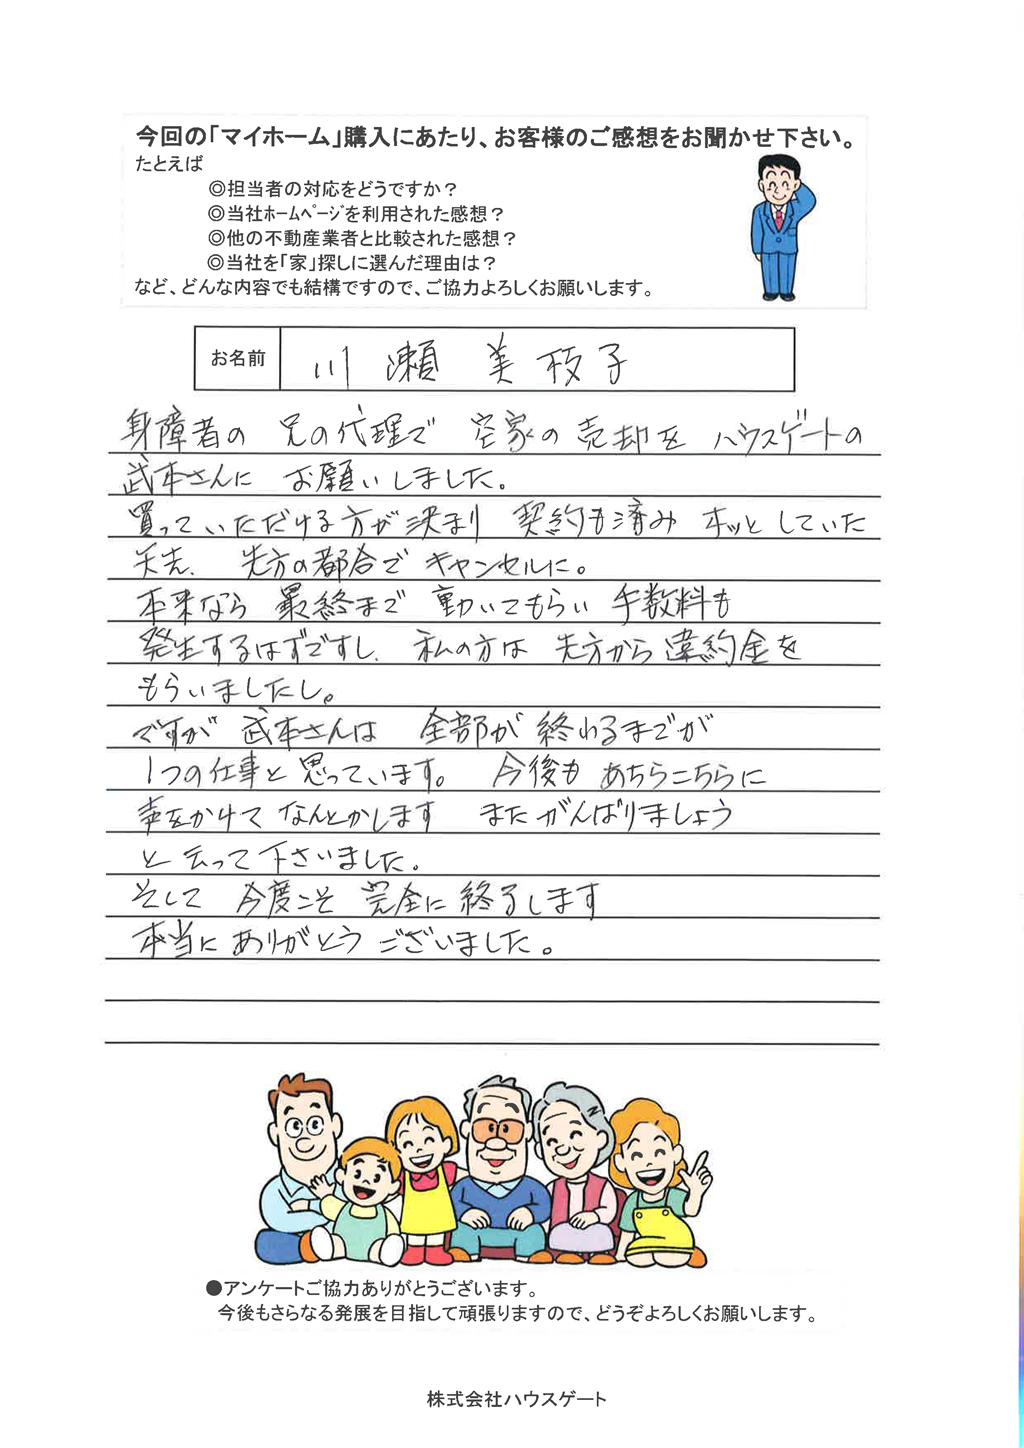 今回の「マイホーム」購入にあたり、お客様のご感想をお聞かせ下さい。
たとえば
◎担当者の対応をどうですか？
◎当社ﾎｰﾑﾍﾟｰｼﾞを利用された感想？
◎他の不動産業者と比較された感想？
◎当社を「家」探しに選んだ理由は？
など、どんな内容でも結構ですので、ご協力よろしくお願いします。
お名前 川瀬 美枝子
身障者の 兄の代理で 空家の売却を ハウスゲートの
武本さんに お願いしました。
買っていただける方が決まり 契約も済み ホッとしていた
矢先、先方の都合で キャンセルに。
本来なら 最終まで 動いてもらい 手数料も
発生するはずですし、私の方は 先方から違約金を
もらいましたし。
ですが 武本さんは 全部が 終わるまでが
1つの仕事と思っています。 今後も あちらこちらに
声をかけて なんとかします またがんばりましょう
と 云って下さいました。
そして 今度こそ 完全に終了します
本当に ありがとう ございました。
●アンケートご協力ありがとうございます。
今後もさらなる発展を目指して頑張りますので、どうぞよろしくお願いします。
株式会社ハウスゲート